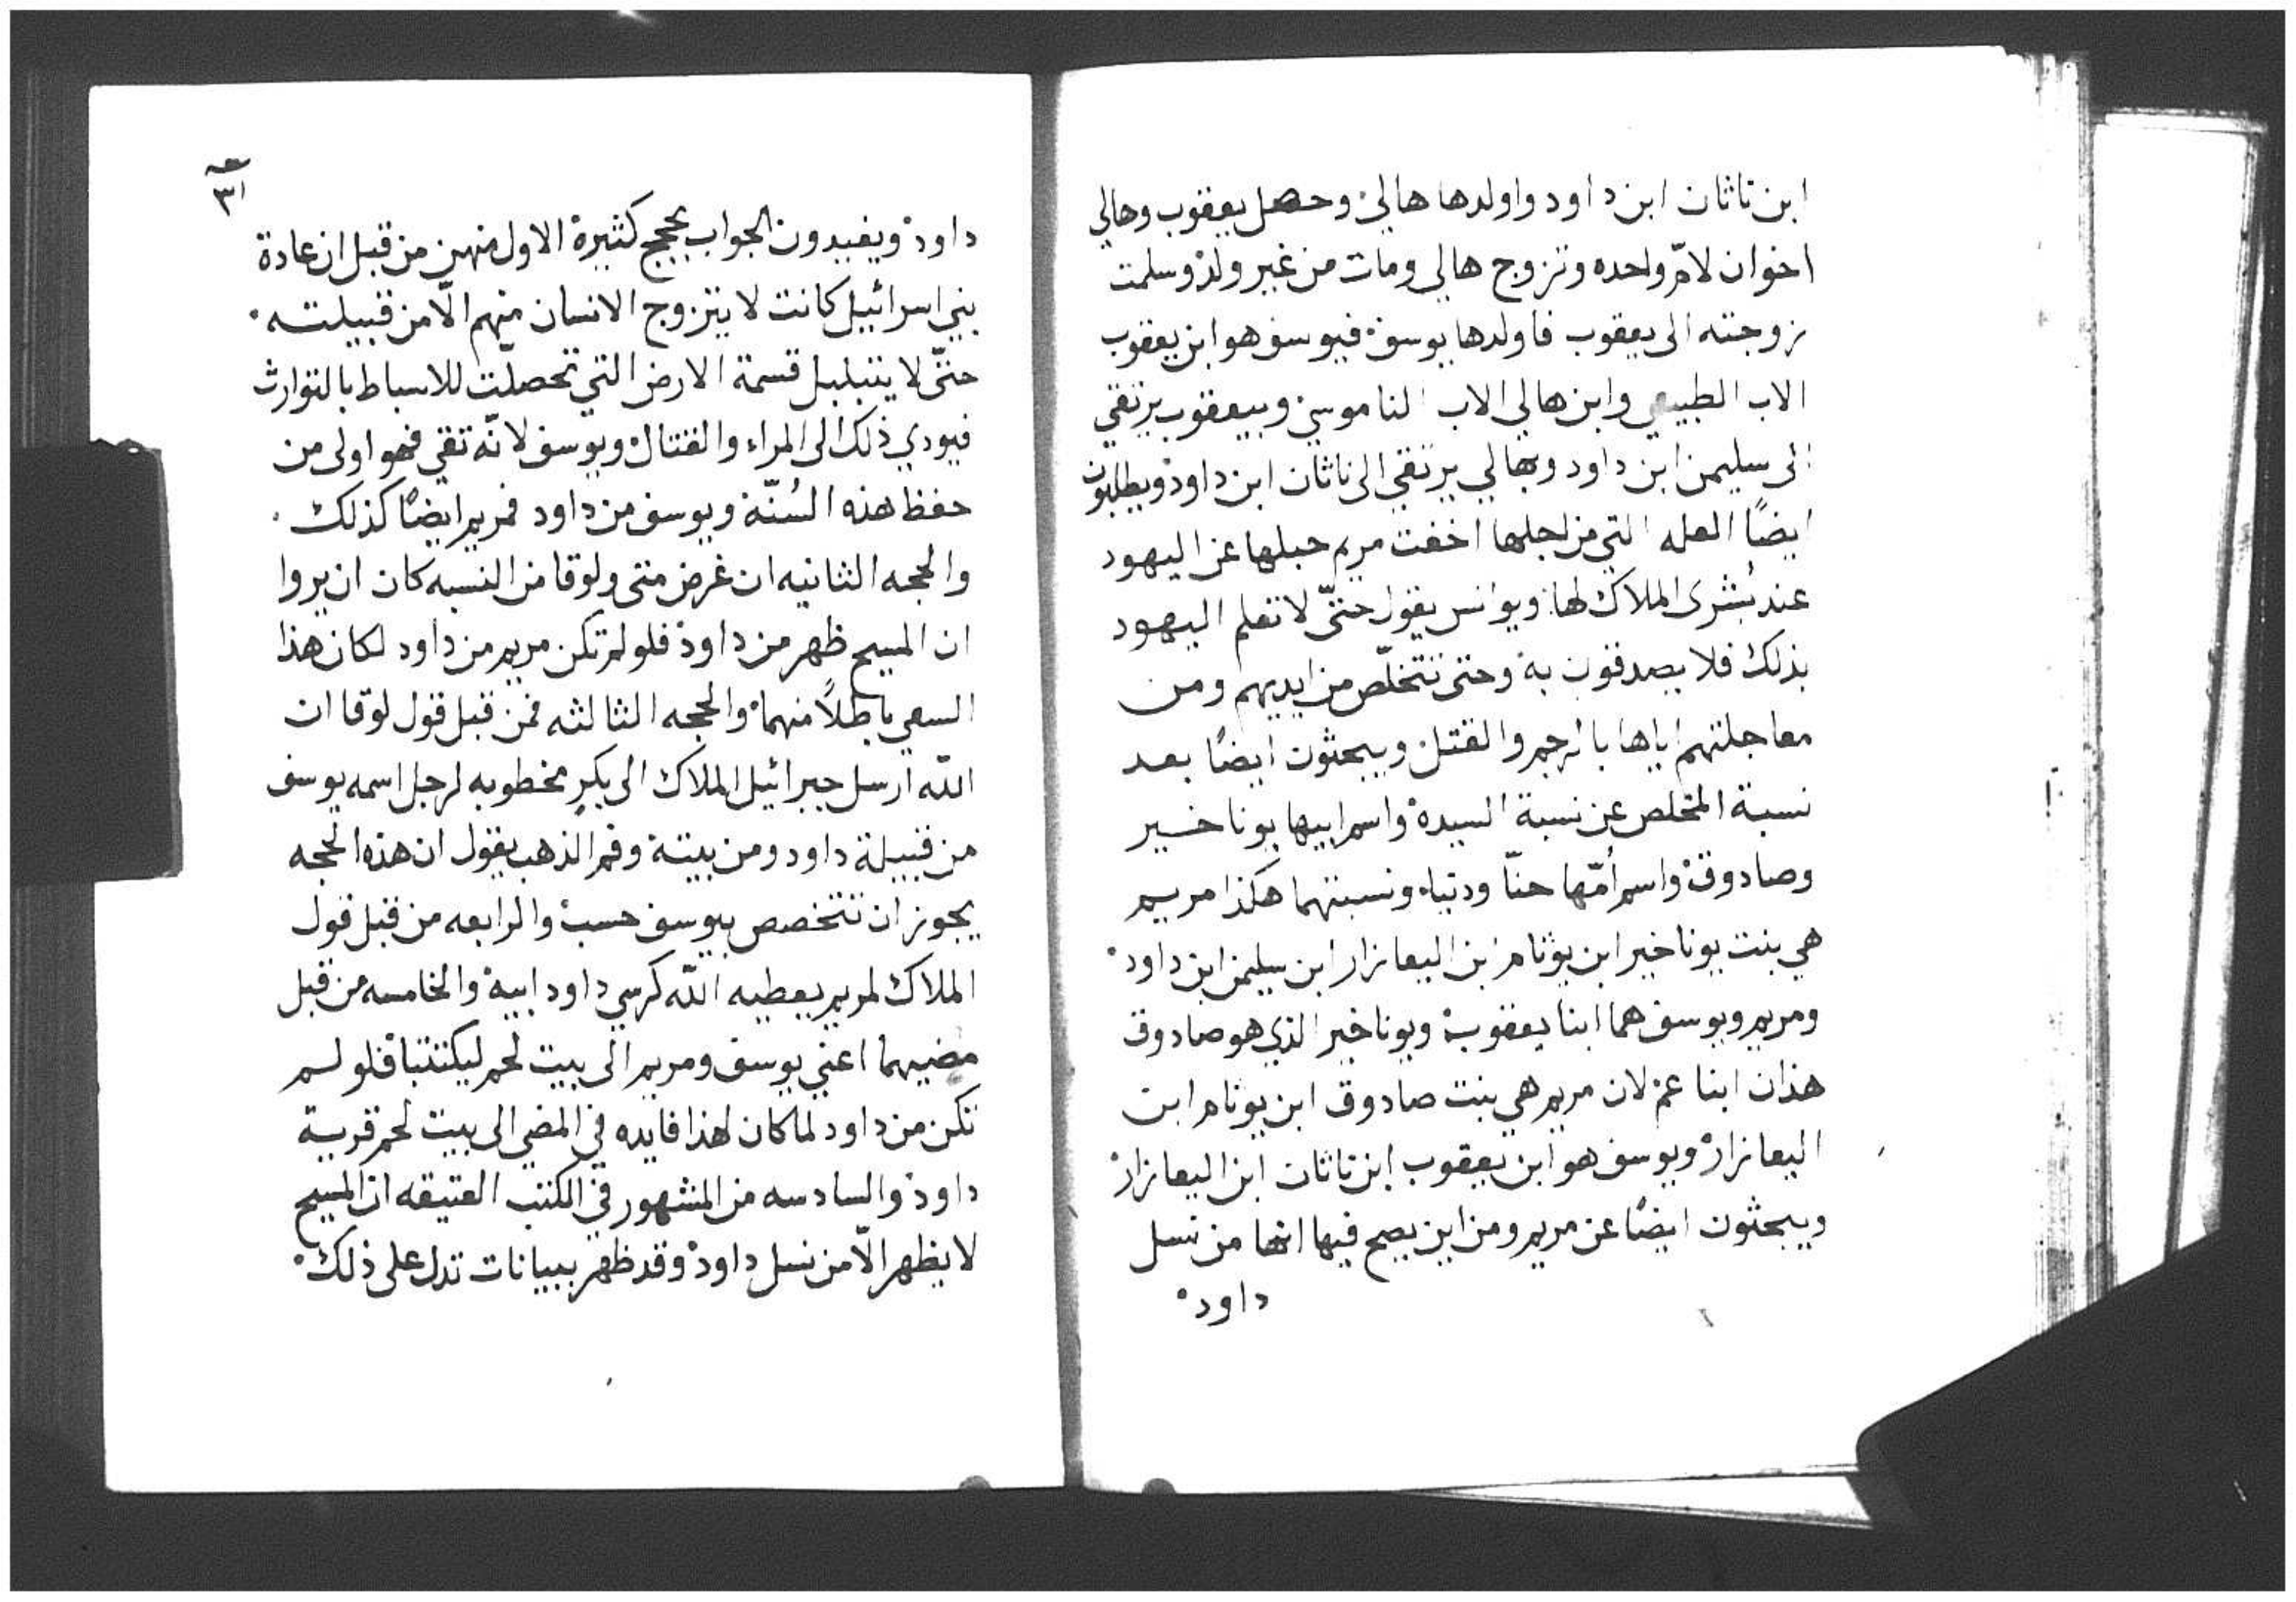 ابن ناثان ابن داود واولدها هالي وحصل يعقوب وهالي
اخوان لامّ واحده وتزوج هالي ومات من غير ولد وسلمت
زوجته الى يعقوب فاولدها يوسف فيوسف هو ابن يعقوب
الاب الطبيعي وابن هالي الاب الناموسي وبيعقوب يرتقي
الى سليمن ابن داود وبهالي يرتقي الى ناثان ابن داود ويطلبون
ايضًا العله التي من اجلها اخفت مريم حبلها عن اليهود
عند بُشرى الملاك لها ويوانس يقول حتّى لا تعلم اليهود
بذلك فلا يصدقون به وحتى تتخلّص من ايديهم ومن
معاجلتهم اياها بالرجم والقتل ويبحثون ايضًا بعد
نسبة المخلص عن نسبة السيدة واسم ابيها يوناخير
وصادوق واسم اُمّها حنّا ودنياه ونسبتهما هكذا مريم
هي بنت يوناخير ابن يوثام ابن اليعازار ابن سليمن ابن داود
ومريم ويوسف هما ابنا يعقوب ويوناخير الذي هو صادوق
هذان ابنا عم لان مريم هي بنت صادوق ابن يوثام ابن
اليعازار ويوسف هو ابن يعقوب ابن ناثان ابن اليعازار
ويبحثون ايضًا عن مريم ومن اين يصح فيها انها من نسل
داود
٣١
داود ويفيدون الجواب بحجج كثيرة الاول منهن من قبل ان عادة
بني اسرائيل كانت لا يتزوج الانسان منهم الّا من قبيلته
حتّى لا يتبلبل قسمة الارض التي تحصلّت للاسباط بالتوارث
فيودي ذلك الى المراء والقتال ويوسف لانّه تقي فهو اولى من
حفظ هذه السُنّة ويوسف من داود فمريم ايضًا كذلك
والحجه الثانيه ان غرض متى ولوقا من النسبه كان ان يروا
ان المسيح ظهر من داود فلو لم تكن مريم من داود لكان هذا
السعي باطلًا منهما والحجه الثالثه فمن قبل قول لوقا ان
اللّه ارسل جبرائيل الملاك الى بكرٍ مخطوبه لرجل اسمه يوسف
من قبيلة داود ومن بيته وفم الذهب يقول ان هذه الحجه
يجوز ان تتخصص بيوسف حسب والرابعه من قبل قول
الملاك لمريم يعطيه اللّه كرسي داود ابيه والخامسه من قبل
مضيهما اعني يوسف ومريم الى بيت لحم ليكتتبا فلو لم
تكن من داود لما كان لهذا فايده في المضي الى بيت لحم قرية
داود والسادسه من المشهور في الكتب العتيقه ان المسيح
لا يظهر الّا من نسل داود وقد ظهر ببيانات تدل على ذلك